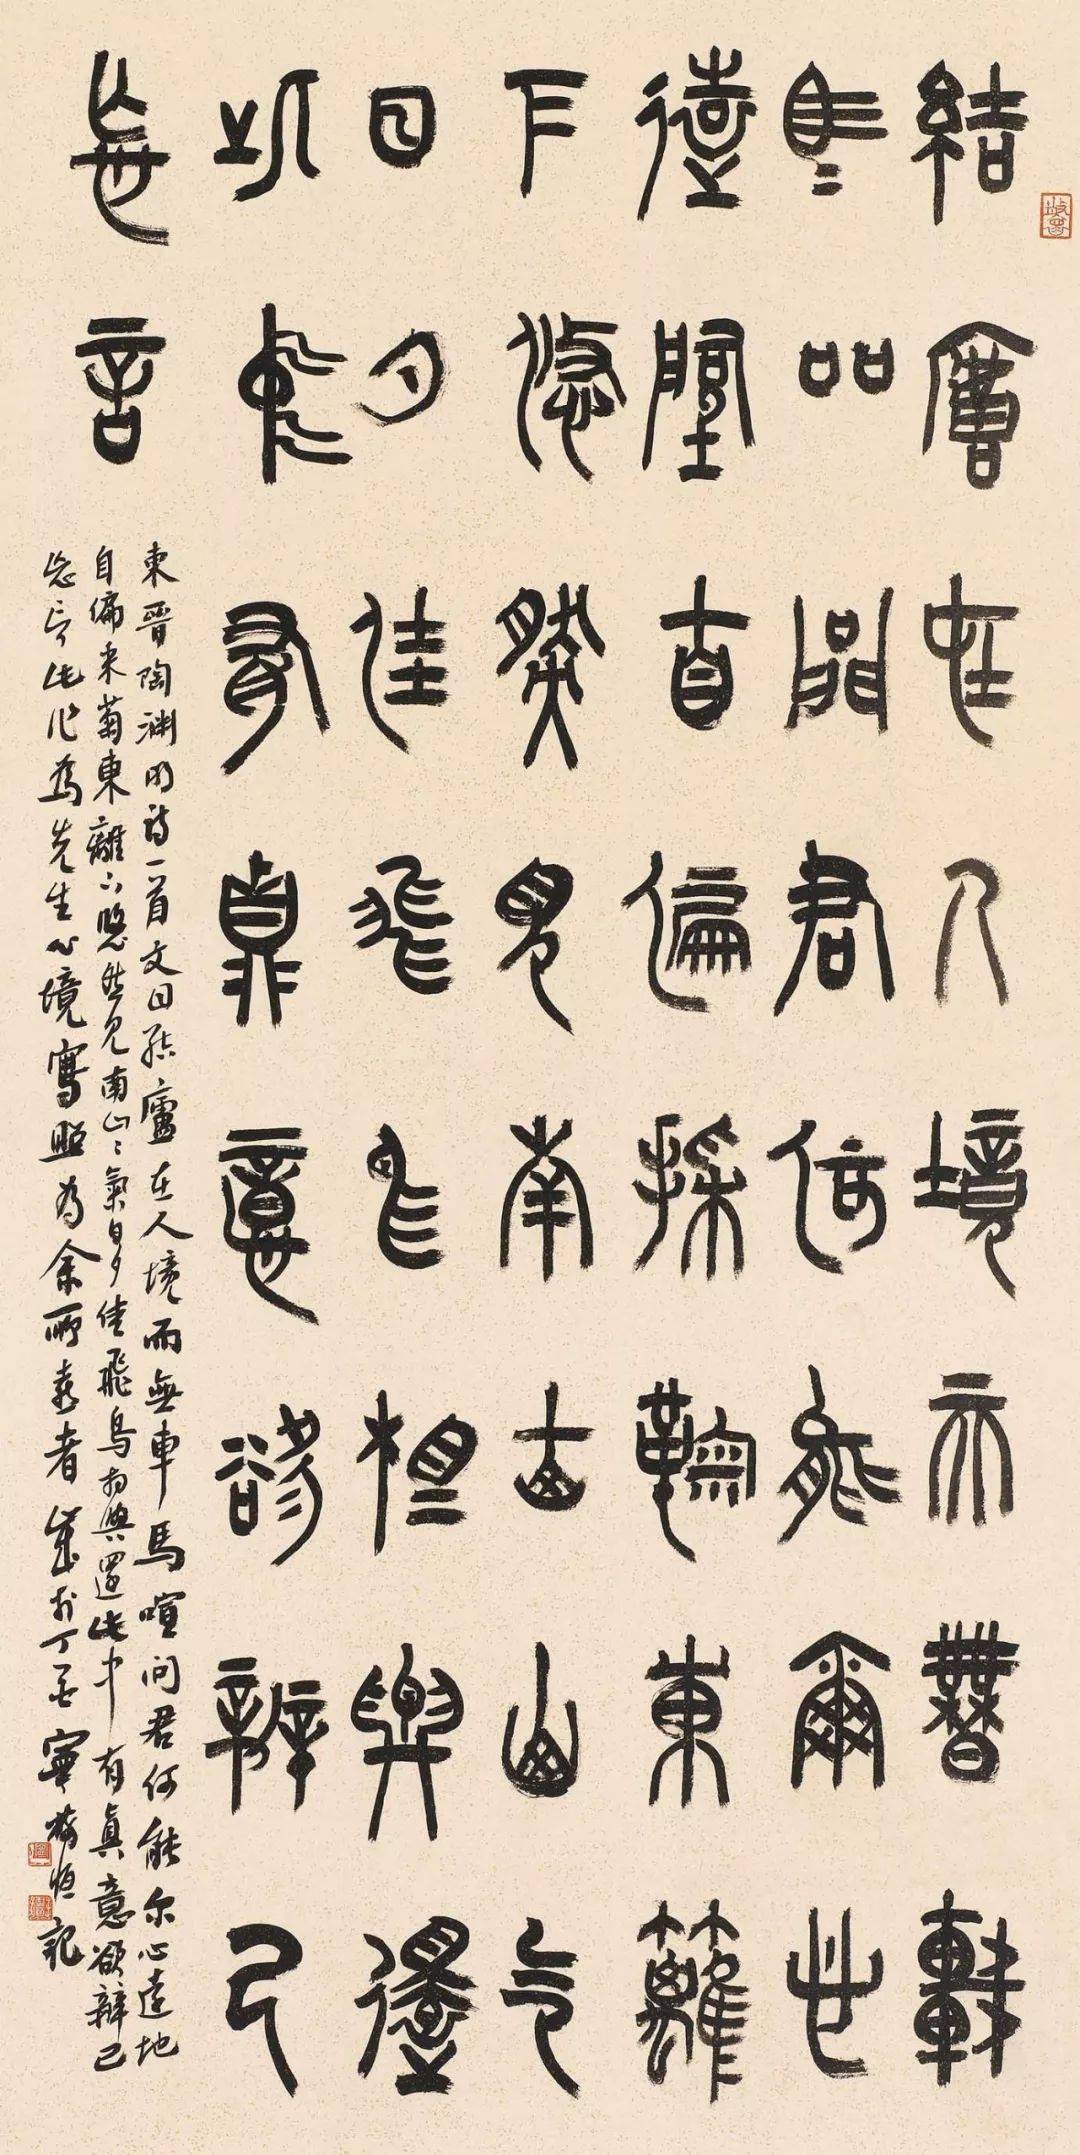 結廬在人境而無車
馬吅問君何能爾心
遠地自偏採菊東籬
下悠然見南山山气
日夕佳飛鳥相與還
此中有真意欲辯已
忘言
東晉陶淵明詩一首文曰結廬在人境而無車馬喧問君何能尔心遠地
自偏采菊東籬下悠然見南山〻氣日夕佳飛鳥相與還此中有真意欲辯已
忘言此作為先生心境寫照為余所喜者歲於丁亥寧恒記